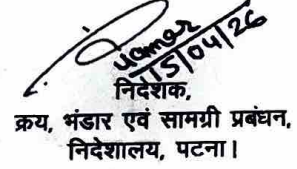 15/04/26
निदेशक,
क्रय, भंडार एवं सामग्री प्रबंधन,
निदेशालय, पटना।